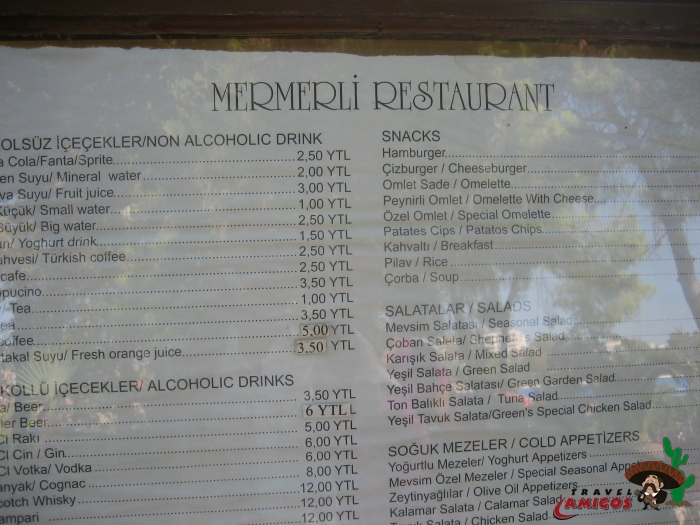 MERMERLİ RESTAURANT
OLSÜZ İÇEÇEKLER/NON ALCOHOLIC DRINK
a Cola/Fanta/Sprite 2,50 YTL
en Suyu/ Mineral water 2,00 YTL
va Suyu/ Fruit juice 3,00 YTL
Küçük/ Small water 1,00 YTL
Büyük/ Big water 2,50 YTL
an/ Yoghurt drink 1,50 YTL
ahvesi/ Türkish coffee 2,50 YTL
cafe 2,50 YTL
ppucino 3,50 YTL
/ Tea 1,00 YTL
ea 3,50 YTL
coffee 5,00 YTL
takal Suyu/ Fresh orange juice 3,50 YTL
KOLLÜ İÇECEKLER/ ALCOHOLIC DRINKS
a/ Beer 3,50 YTL
ier Beer 6 YTL L
Cl Rakı 5,00 YTL
Cl Cin / Gin 6,00 YTL
Cl Votka/ Vodka 6,00 YTL
anyak/ Cognac 8,00 YTL
cotch Whisky 12,00 YTL
ampari 12,00 YTL
12,00 YTL
SNACKS
Hamburger
Çizburger / Cheeseburger
Omlet Sade / Omelette
Peynirli Omlet / Omelette With Cheese
Özel Omlet / Special Omelette
Patates Cips / Patatos Chips
Kahvaltı / Breakfast
Pilav / Rice
Çorba / Soup
SALATALAR / SALADS
Mevsim Salatası / Seasonal Salad
Çoban Salata/ Shepherds Salad
Karışık Salata / Mixed Salad
Yeşil Salata / Green Salad
Yeşil Bahçe Salatası/ Green Garden Salad
Ton Balıklı Salata / Tuna Salad
Yeşil Tavuk Salata/Green's Special Chicken Salad
SOĞUK MEZELER / COLD APPETİZERS
Yoğurtlu Mezeler/ Yoghurt Appetizers
Mevsim Özel Mezeler / Special Seasonal App
Zeytinyağlılar / Olive Oil Appetizers
Kalamar Salata / Calamar Salad
Salata / Chicken Salad
TRAVEL
AMIGOS